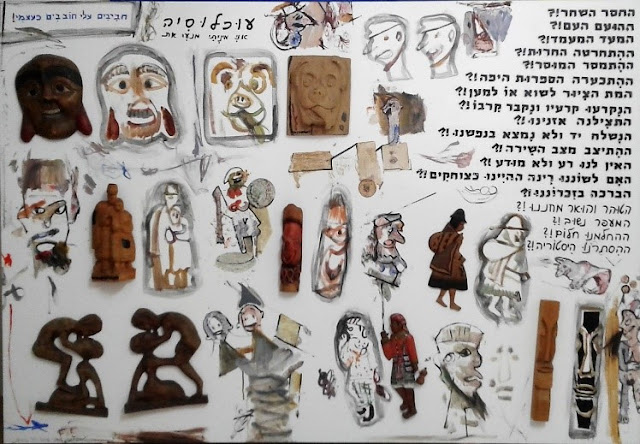 חביבים עלי חובבים כעצמי!
עוכלוסיה
את
החסר השחר?!
ההועם העם?!
המעד המעמד?!
ההתחרטה החרות?!
ההתמסר המוסר?!
ההתכערה הספרות היפה?!
המת הציור לשוא או למען?!
הנקרעו קרעיו ונקבר קרבו?!
התצילנה אזנינו?!
הנשלח יד ולא נמצא בנפשנו?!
ההתיצב מצב השירה?!
האין לנו רע ולא מודע?!
האם לשוננו רינה ההיינו כצוחקים?!
הברכה בזכרוננו?!
הטוהר והואר מחננו?!
המעפר נשוב?!
ההחלמנו חלום?!
ההסתרנו היסטוריה?!